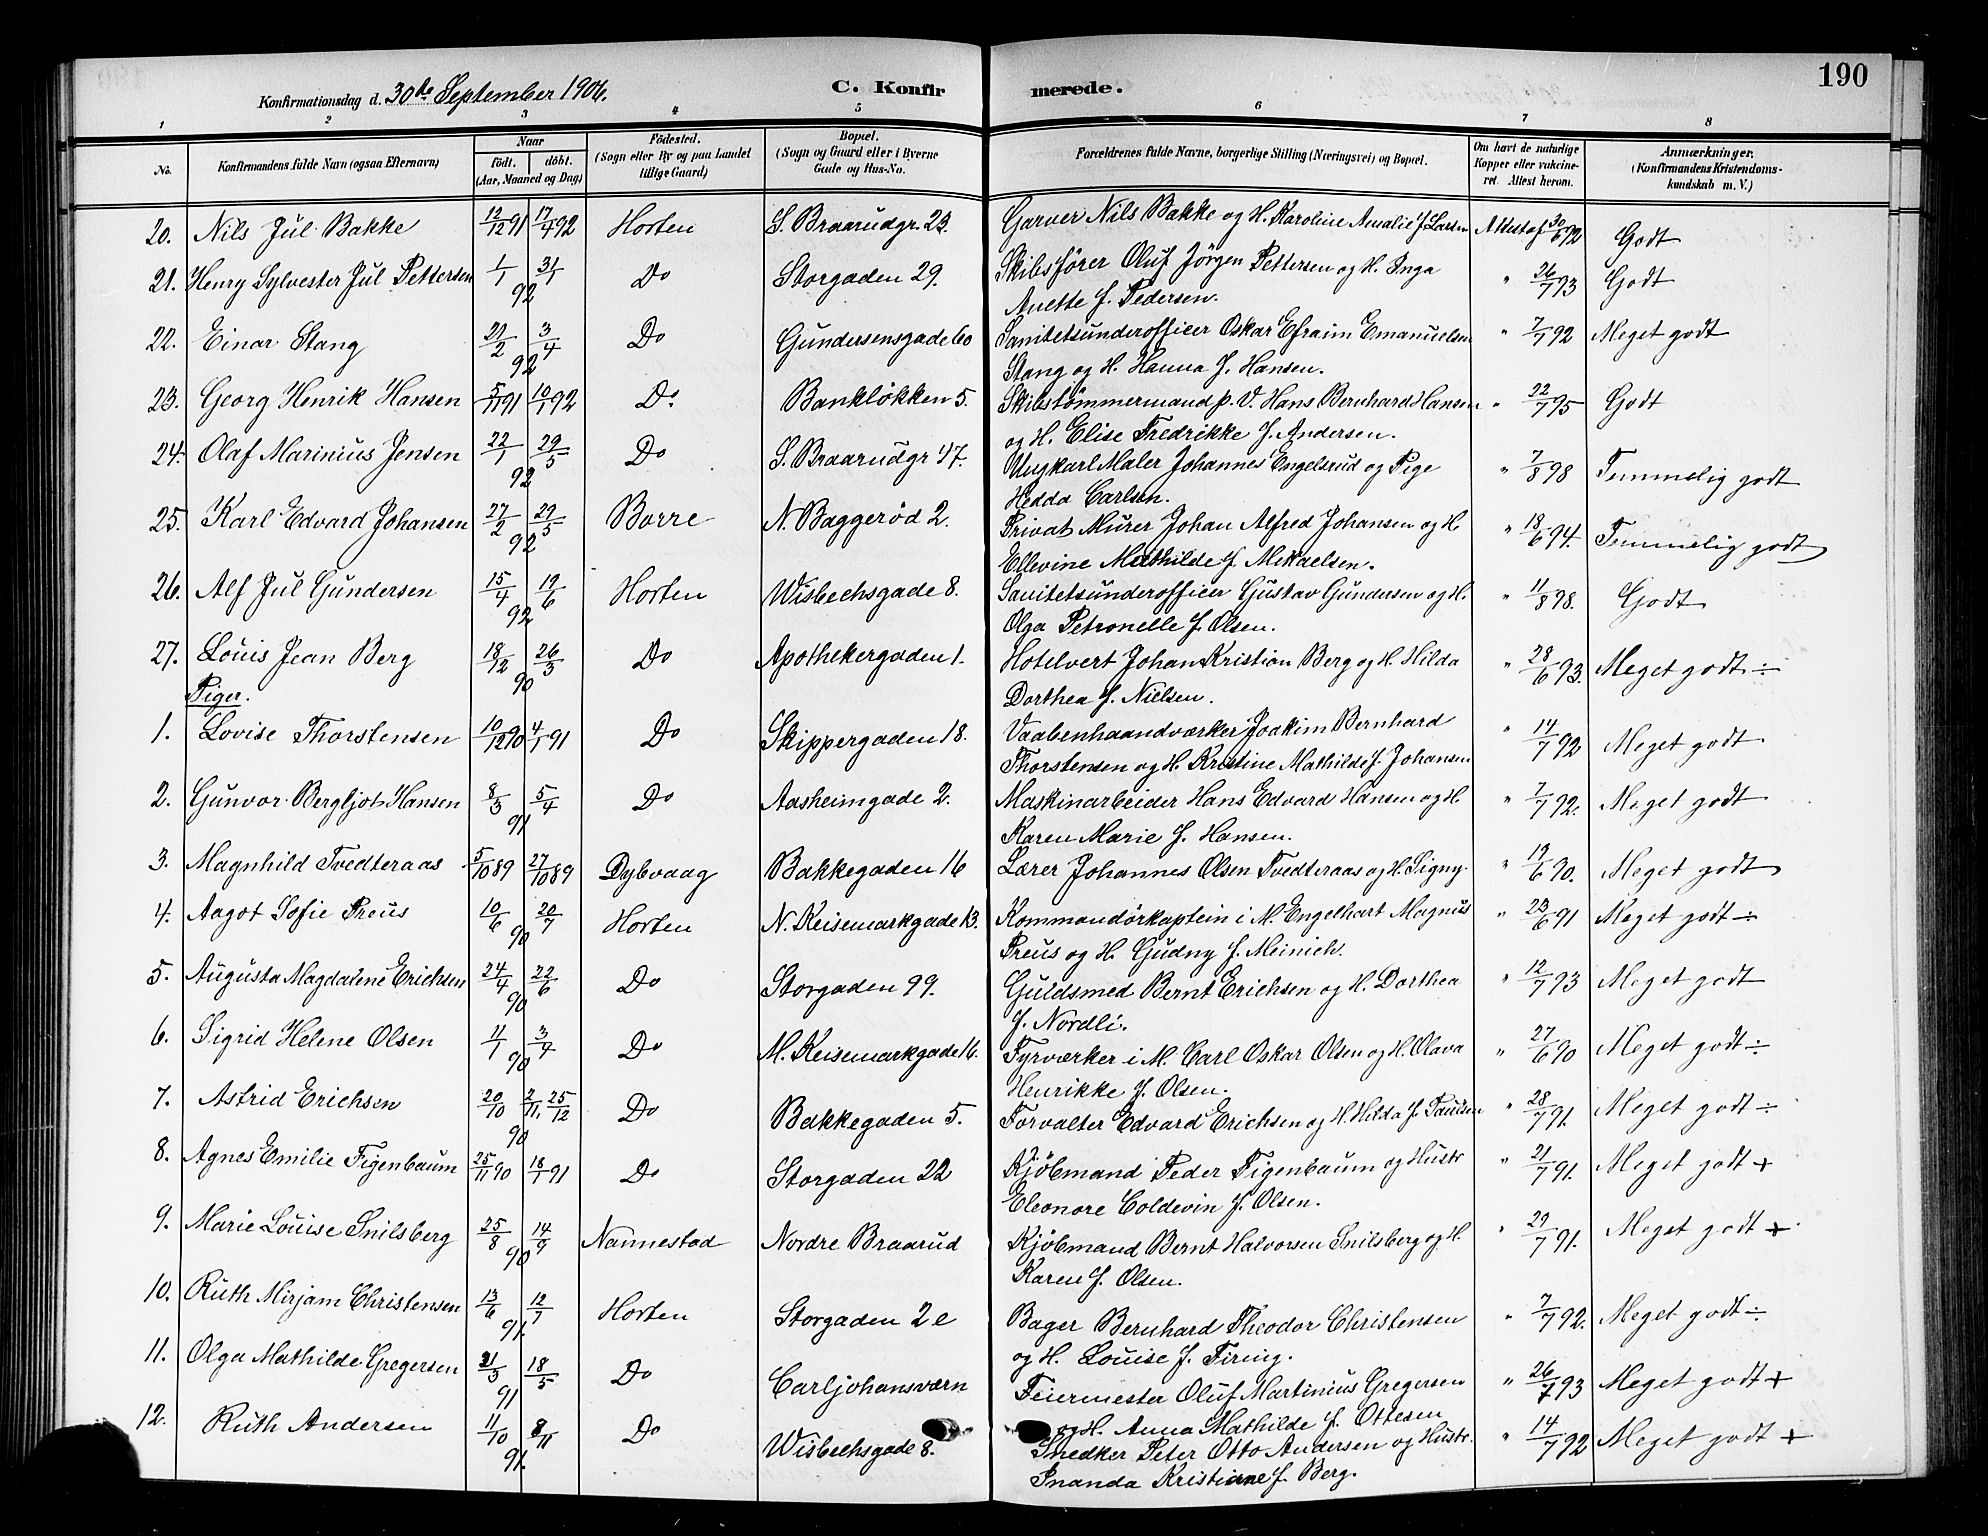 190
Konfirmationsdag d. 30de September 1906. C. Konfirmerede.
1 2 3 4 5 6 7 8
No. Konfirmandens fulde Navn (ogsaa Efternavn) Naar født. døbt. (Aar, Maaned og Dag) Fødested. (Sogn eller By og paa Landet tillige Gaard) Bopæl. (Sogn og Gaard eller i Byerne Gade og Hus-No. Forældrenes fulde Navne, borgerlige Stilling (Næringsvei) og Bopæl. Om havt de naturlige Kopper eller vakcineret. Attest herom. Anmærkninger. (Konfirmandens Kristendomskundskab m. V.)
20. Nils Jul Bakke 12/12 91 17/4 92 Horten S. Braarudgr. 23. Garver Nils Bakke og H. Karoline Amalie f. Larsen Attest af 30/6 92 Godt
21. Henry Sylvester Jul Pettersen 1/1 31/1 92 Do Storgaden 29. Skibsfører Oluf Jörgen Pettersen og H. Inga " 26/7 93 Godt
Anette f. Pedersen.
22. Einar Stang 22/2 3/4 92 Do Gundersensgade 60 Sanitetsunderofficer Oskar Efraim Emanuelsen " 7/7 92 Meget godt
Stang og H. Hanna f. Hansen.
23. Georg Henrik Hansen 5/11 91 10/1 92 Do Bankløkken 5. Skibstømmermand p. V. Hans Bernhard Hansen " 22/7 95 Godt
og H. Elise Fredrikke f. Andersen.
24. Olaf Marinius Jensen 22/1 29/5 92 Do S. Braarudgr 47. Ungkarl Maler Johannes Engelsrud og Pige " 7/8 98 Temmelig godt
Hedda Carlsen.
25. Karl Edvard Johansen 27/2 29/5 92 Borre N. Baggerød 2. Privat Murer Johan Alfred Johansen og H " 18/6 94. Temmelig godt
Ellevine Mathilde f. Mikaelsen.
26. Alf Jul Gundersen 15/4 19/6 92 Horten Wisbechsgade 8. Sanitetsunderofficer Gustav Gundersen og H. " 11/8 98. Godt
Olga Petronelle f. Olsen.
27. Louis Jean Berg 18/12 26/3 90 Do Apothekergaden 1. Hotelvert Johan Kristian Berg og H. Hilda " 28/6 93. Meget godt ÷
Dorthea f. Nielsen.
Piger.
1. Lovise Thorstensen 10/12 90 4/1 91 Do Skippergaden 18. Vaabenhaandværker Joakim Bernhard " 14/7 92 Meget godt
Thorstensen og H. Kristine Mathilde f. Johansen
2. Gunvor Bergljot Hansen 8/3 5/4 91 Do Aasheimgade 2. Maskinarbeider Hans Edvard Hansen og H " 7/7 92. Meget godt
Karen Marie f. Hansen.
3. Magnhild Tvedteraas 5/10 89 27/10 89 Dybvaag Bakkegaden 16 Lærer Johannes Olsen Tvedteraas og H. Signy " 19/6 90. Meget godt
4. Aagot Sofie Preus 10/6 20/7 90 Horten N. Keisemarkgade 13. Kommandörkaptein i M. Engelhart Magnus " 23/6 91 Meget godt ÷
Preus og H. Gudny f. Meinich.
5. Augusta Magdalene Erichsen 24/4 22/6 90 Do Storgaden 99. Guldsmed Bernt Erichsen og H. Dorthea " 12/7 93 Meget godt
f. Nordli.
6. Sigrid Helene Olsen 4/1 3/4 90 Do M. Keisemarkgade 16. Fyrværker i M. Carl Oskar Olsen og H. Olava " 27/6 90 Meget godt ÷
Henrikke f. Olsen.
7. Astrid Erichsen 20/10 2/11. 25/12 90 Do Bakkegaden 5. Forvalter Edvard Erichsen og H. Hilda f. Paulsen " 28/7 91. Meget godt ÷
8. Agnes Emilie Figenbaum 25/11 90 18/1 91 Do Storgaden 22 Kjøbmand Peder Figenbaum og Hustr " 21/7 91. Meget godt +
Eleonore Coldevin f. Olsen.
9. Marie Louise Snilsberg 25/8 14/9 90 Nannestad Nordre Braarud Kjøbmand Bernt Halvorsen Snilsberg og H. " 29/7 91. Meget godt +
Karen f. Olsen.
10. Ruth Mirjam Christensen 13/6 12/7 91. Horten Storgaden 2 e Bager Bernhard Theodor Christensen " 7/7 92. Meget godt ÷
og H. Louise f. Firing.
11. Olga Mathilde Gregersen 31/3 18/5 91 Do Carljohansværn Feiermester Oluf Martinius Gregersen " 26/7 93 Meget godt +
og H. Anna Mathilde f. Ottesen
12. Ruth Andersen 11/10 8/11 91. Do Wisbechsgade 8. Snedker Peter Otto Andersen og Hustr. " 14/7 92 Meget godt +
Inanda Kristiane f. Berg.